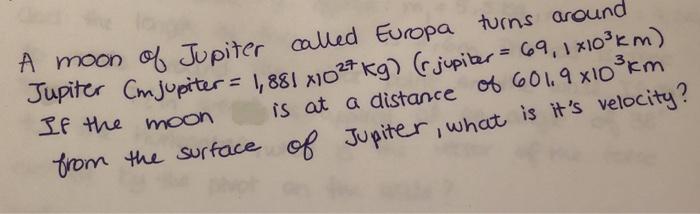 A moon of Jupiter called Europa turns around
Jupiter (mjupiter = 1,881 x10²⁷ kg) (rjupiter = 69,1 x10³km)
If the moon is at a distance of 601,9 x10³km
from the surface of Jupiter, what is it's velocity?